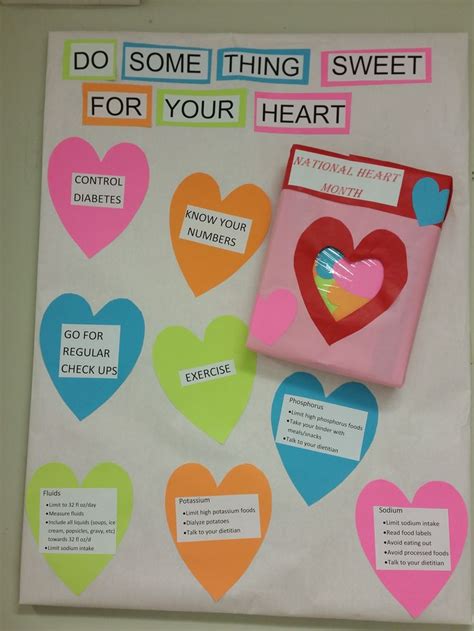 DO SOME THING SWEET
FOR YOUR HEART
NATIONAL HEART
MONTH
CONTROL
DIABETES
KNOW YOUR
NUMBERS
GO FOR
REGULAR
CHECK UPS
EXERCISE
Phosphorus
•Limit high phosphorus foods
•Take your binder with
meals/snacks
•Talk to your dietitian
Fluids
•Limit to 32 fl oz/day
•Measure fluids
•Include all liquids (soups, ice
cream, popsicles, gravy, etc)
towards 32 fl oz/d
•Limit sodium intake
Potassium
•Limit high potassium foods
•Dialyze potatoes
•Talk to your dietitian
Sodium
•Limit sodium intake
•Read food labels
•Avoid eating out
•Avoid processed foods
•Talk to your dietitian